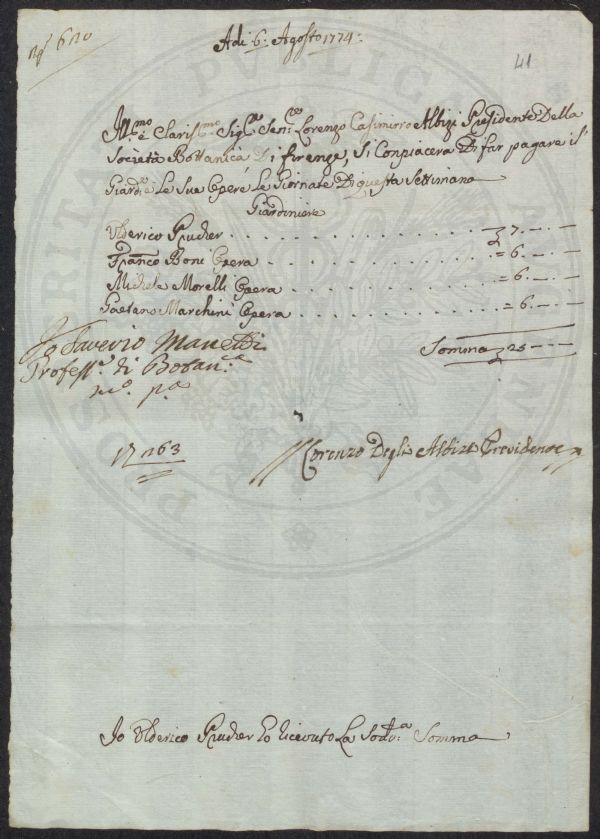 Adi 6: Agosto 1774:
41
Ill:mo e Claris:mo Sig:re Sen:re Lorenzo Casimirro Albizi Presidente Della
Società Bottanica Di firenze, Si Conpiacera Di far pagare il
Giard:re Le Sua Opere Le Giornate Di questa Settimana
Giardiniere
Ulderico Prucker . . . . . . . . . . . . 7. — —
Franco Boni Opera . . . . . . . . . . . = 6. — —
Michele Morelli Opera . . . . . . . . . = 6. — —
Gaetano Marchini Opera . . . . . . . . = 6. — —
Somma 25 — —
Io Saverio Manetti
Profess:e di Botan:ca
m:o p:a
Lorenzo Degli Albizi Previdence
Io Ulderico Prucker Ho ricevuto La Sod:a Somma